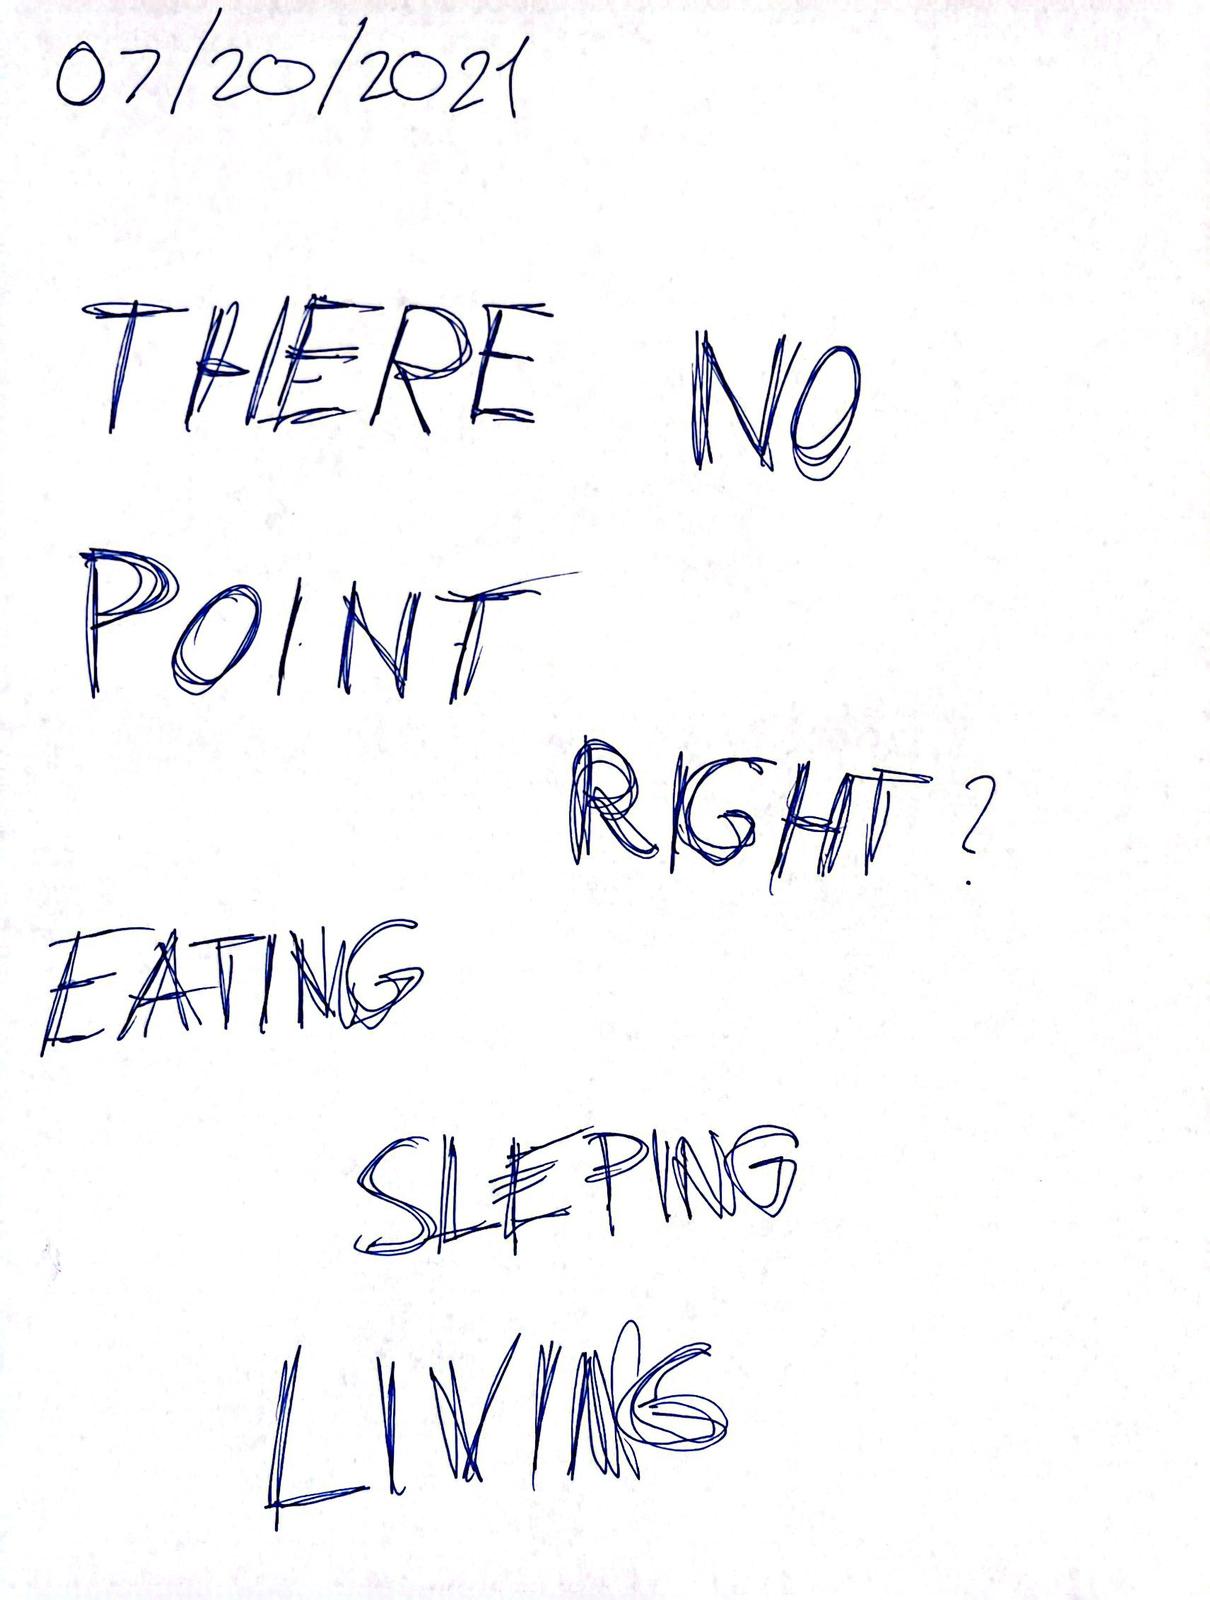 07/20/2021
THERE NO
POINT
RIGHT?
EATING
SLEPING
LIVING